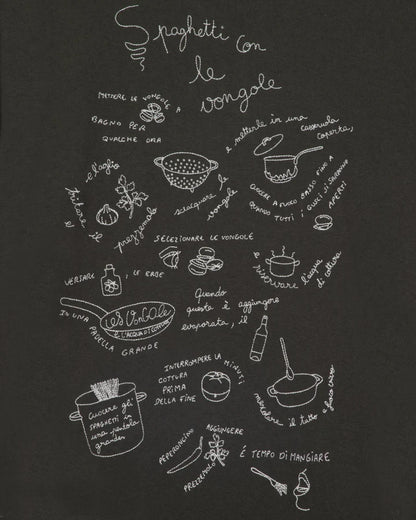 Spaghetti con
le
vongole
METTERE LE VONGOLE A
BAGNO PER
QUALCHE ORA
sciacquare le
vongole
e metterle in una casseruola
coperta,
CUOCERE A FUOCO BASSO FINO A
QUANDO TUTTI I GUSCI SI SARANNO
APERTI
tritare il prezzemolo
e l'aglio
SELEZIONARE LE VONGOLE
e riservare l'acqua
di cottura
VERSARE
, LE ERBE
LES VONGOLE
E L'ACQUA DI COTTURA
IN UNA
PADELLA GRANDE
Quando
questa è
evaporata,
aggiungere
il
Cuocere gli
SPAGHETTI in
una pentola
grande
INTERROMPERE LA
COTTURA
PRIMA
DELLA FINE
MINUTI
mescolare il tutto
a fuoco
PEPERONCINO
AGGIUNGERE
PREZZEMOLO
É TEMPO DI MANGIARE